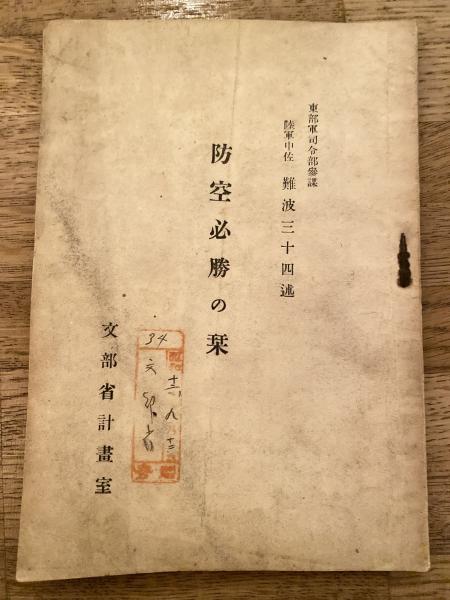 東部軍司令部參謀
陸軍中佐 難波三十四述
防空必勝の栞
34
文部省
文部省計畫室